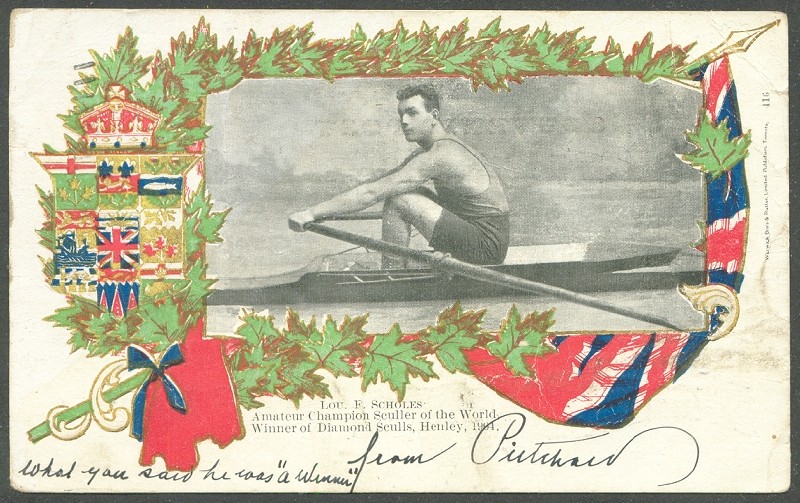 116
Warwick Bro's & Rutter, Limited, Publishers, Toronto.
Lou. F. Scholes
Amateur Champion Sculler of the World.
Winner of Diamond Sculls, Henley, 1904.
what you said he was "a Winner"
from Pritchard